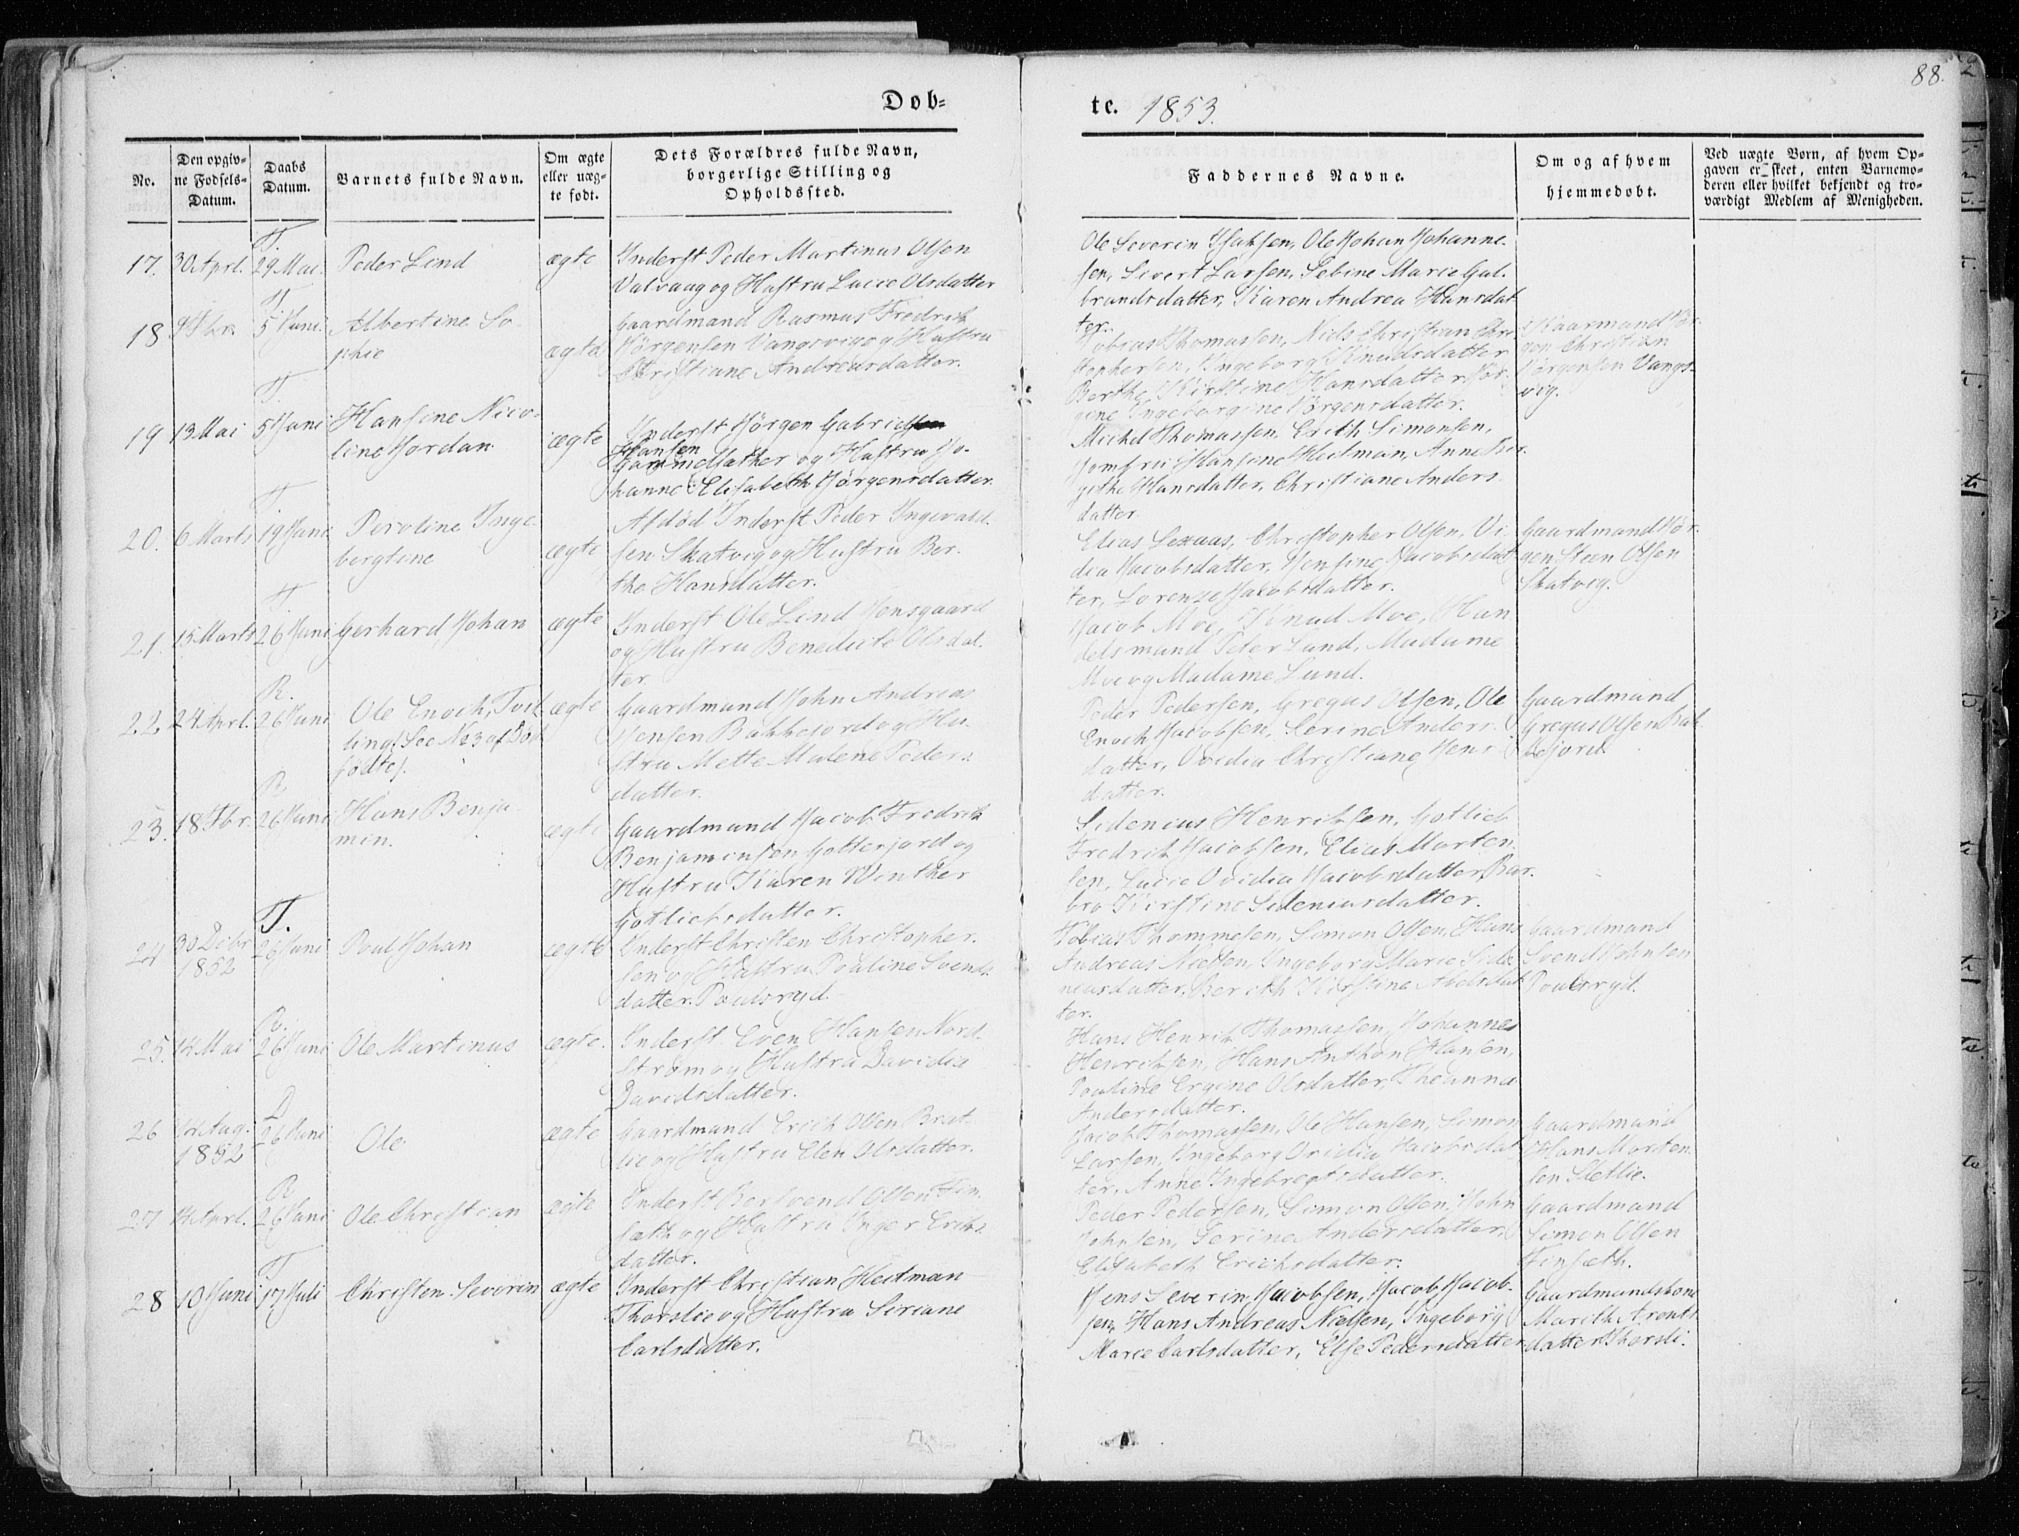 88.
Dob=
te. 1853.
No.
Den opgiv=
ne Fødsels=
Datum.
Daabs
Datum.
Barnets fulde Navn.
Om ægte
eller uæg=
te født.
Dets Forældres fulde Navn,
borgerlige Stilling og
Opholdssted.
Faddernes Navne.
Om og af hvem
hjemmedøbt.
Ved uægte Børn, af hvem Op=
gaven er skeet, enten Barnemo=
deren eller hvilket bekjendt og tro=
værdigt Medlem af Menigheden.
T.
17. 30 Aprl. 29 Mai. Peder Lind ægte Inderst Peder Martinus Olsen
Valvaag og Hustru Lucie Olsdatter
Ole Severin Isaksen, Ole Johan Johanne-
sen, Sivert Larsen, Sebine Marie Gul-
brandsdatter, Karen Andrea Hansdat
ter.
T.
18 9 Fbr. 5 Juni. Albertine So-
phie
ægte
Gaardmand Rasmus Fredrik
Jørgensen Vangsvig og Hustru
Christiane Andreasdatter.
Tobias Thomassen, Niels Christian Chri-
stophersen, Ingeborg Knudsdatter
Berthe Kirstine Hansdatter, Jør-
gine Ingeborgine Jørgensdatter.
Gaarmand Jør-
gen Christian
Jørgensen Vangs-
vig.
T.
19 13 Mai 5 Juni Hansine Nico-
line Jordan
ægte
Inderst Jørgen Gabriel
Hansen
Gammelsæther og Hustru Jo-
hanne Elisabeth Jørgensdatter.
Mikel Thomassen, Erith Simonsen,
Jomfru Hansine Heitman, Anne Bir-
githe Hansdatter, Christiane Anders-
datter.
T
20. 6 Marts 19 Juni Peroline Inge-
borgtine
ægte
Afdød Inderst Peder Ingevald-
sen Skatvig og Hustru Ber-
the Hansdatter.
Elias Lexaus, Christopher Olsen, Vi-
dia Jacobsdatter, Jensine Jacobsdat
ter, Lorenze Jacobsdatter.
Gaardmand Jør-
gen Steen Olsen
Skatvig.
T
21. 15 Marts 26 Juni Gerhard Johan ægte
Inderst Ole Lind Jensgaard
og Hustru Benedicte Olsdat-
ter.
Jacob Moe, Knud Moe, Han
delsmand Peter Lund, Madame
Moe og Madame Lund.
R.
22. 24 Aprl. 26 Juni Ole Enoch, Tvil
ling (See No 3 af Død
fødte).
ægte
Gaardmand John Andreas
Jensen Bakkejord og Hu-
stru Mette Malene Peders-
datter.
Peder Pedersen, Gregus Olsen, Ole
Enoch Jacobsen, Serine Anders-
datter, Ovidia Christiane Jens-
datter.
Gaardmand
Gregus Olsen Bak
kejord.
R
23. 18 Fbr. 26 Juni Hans Benja-
min.
ægte
Gaardmand Jacob Fredrik
Benjaminsen Gotterjord og
Hustru Karen Winther
Gotliebsdatter.
Sidenius Henriksen, Gotlieb
Fredrik Jacobsen, Elias Morten-
sen, Lucie Ovidia Jacobsdatter, Bar-
bro Kirstine Sideniusdatter.
T.
24 30 Dcbr
1852
26 Juni Poul Johan ægte
Inderst Christen Christopher-
sen og Hustru Pauline Svends-
datter Poulsryd.
Tobias Thommesen, Simon Olsen, Hans
Andreas Nielsen, Ingeborg Marie Side-
niusdatter, Berith Kirstine Abelsdat
ter.
Gaardmand
Svend Johnsen
Poulsryd.
R.
25. 12 Mai 26 Juni Ole Martinus ægte.
Inderst Even Hansen Nord-
strøm og Hustru Davidia
Davidsdatter.
Hans Henrik Thomassen, Johannes
Henriksen, Hans Anthon Hansen,
Pauline Ergine Olsdatter, Theanna
Andersdatter.
D
26 12 Aug.
1852
26 Juni Ole ægte
Gaardmand Erich Olsen Brat-
lie og Hustru Elen Olsdatter.
Jacob Thomassen, Ole Hansen, Simon
Larsen, Ingeborg Ovidia Jacobsdat
ter, Anne Ingebregtsdatter.
Gaardmand
Hans Morten-
sen Sletlie.
R
27 14 Aprl. 26 Juni Ole Christian ægte
Inderst Bersvend Olsen Fin-
sæth og Hustru Inger Eriks-
datter.
Peder Pedersen, Simon Olsen, John
Johnsen, Serine Andersdatter,
Elisabeth Erichsdatter.
Gaardmand
Simon Olsen
Finsæth.
T
28 10 Juni 17 Juli Christen Severin ægte
Inderst Christian Heitman
Thorslie og Hustru Siriane
Carlsdatter.
Jens Severin Jacobsen, Jacob Jacob-
sen, Hans Andreas Nielsen, Ingeborg
Marie Carlsdatter, Else Pedersdatter
Gaardmandskone
Marith Aronts
datter Thorsli.